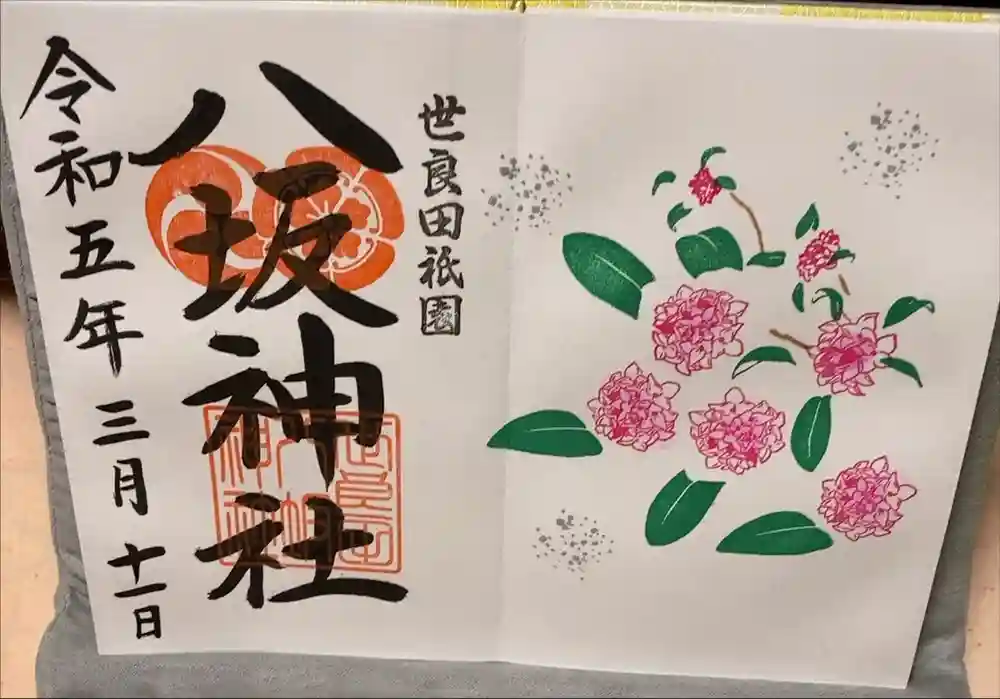 世良田祇園
八坂神社
令和五年三月十一日